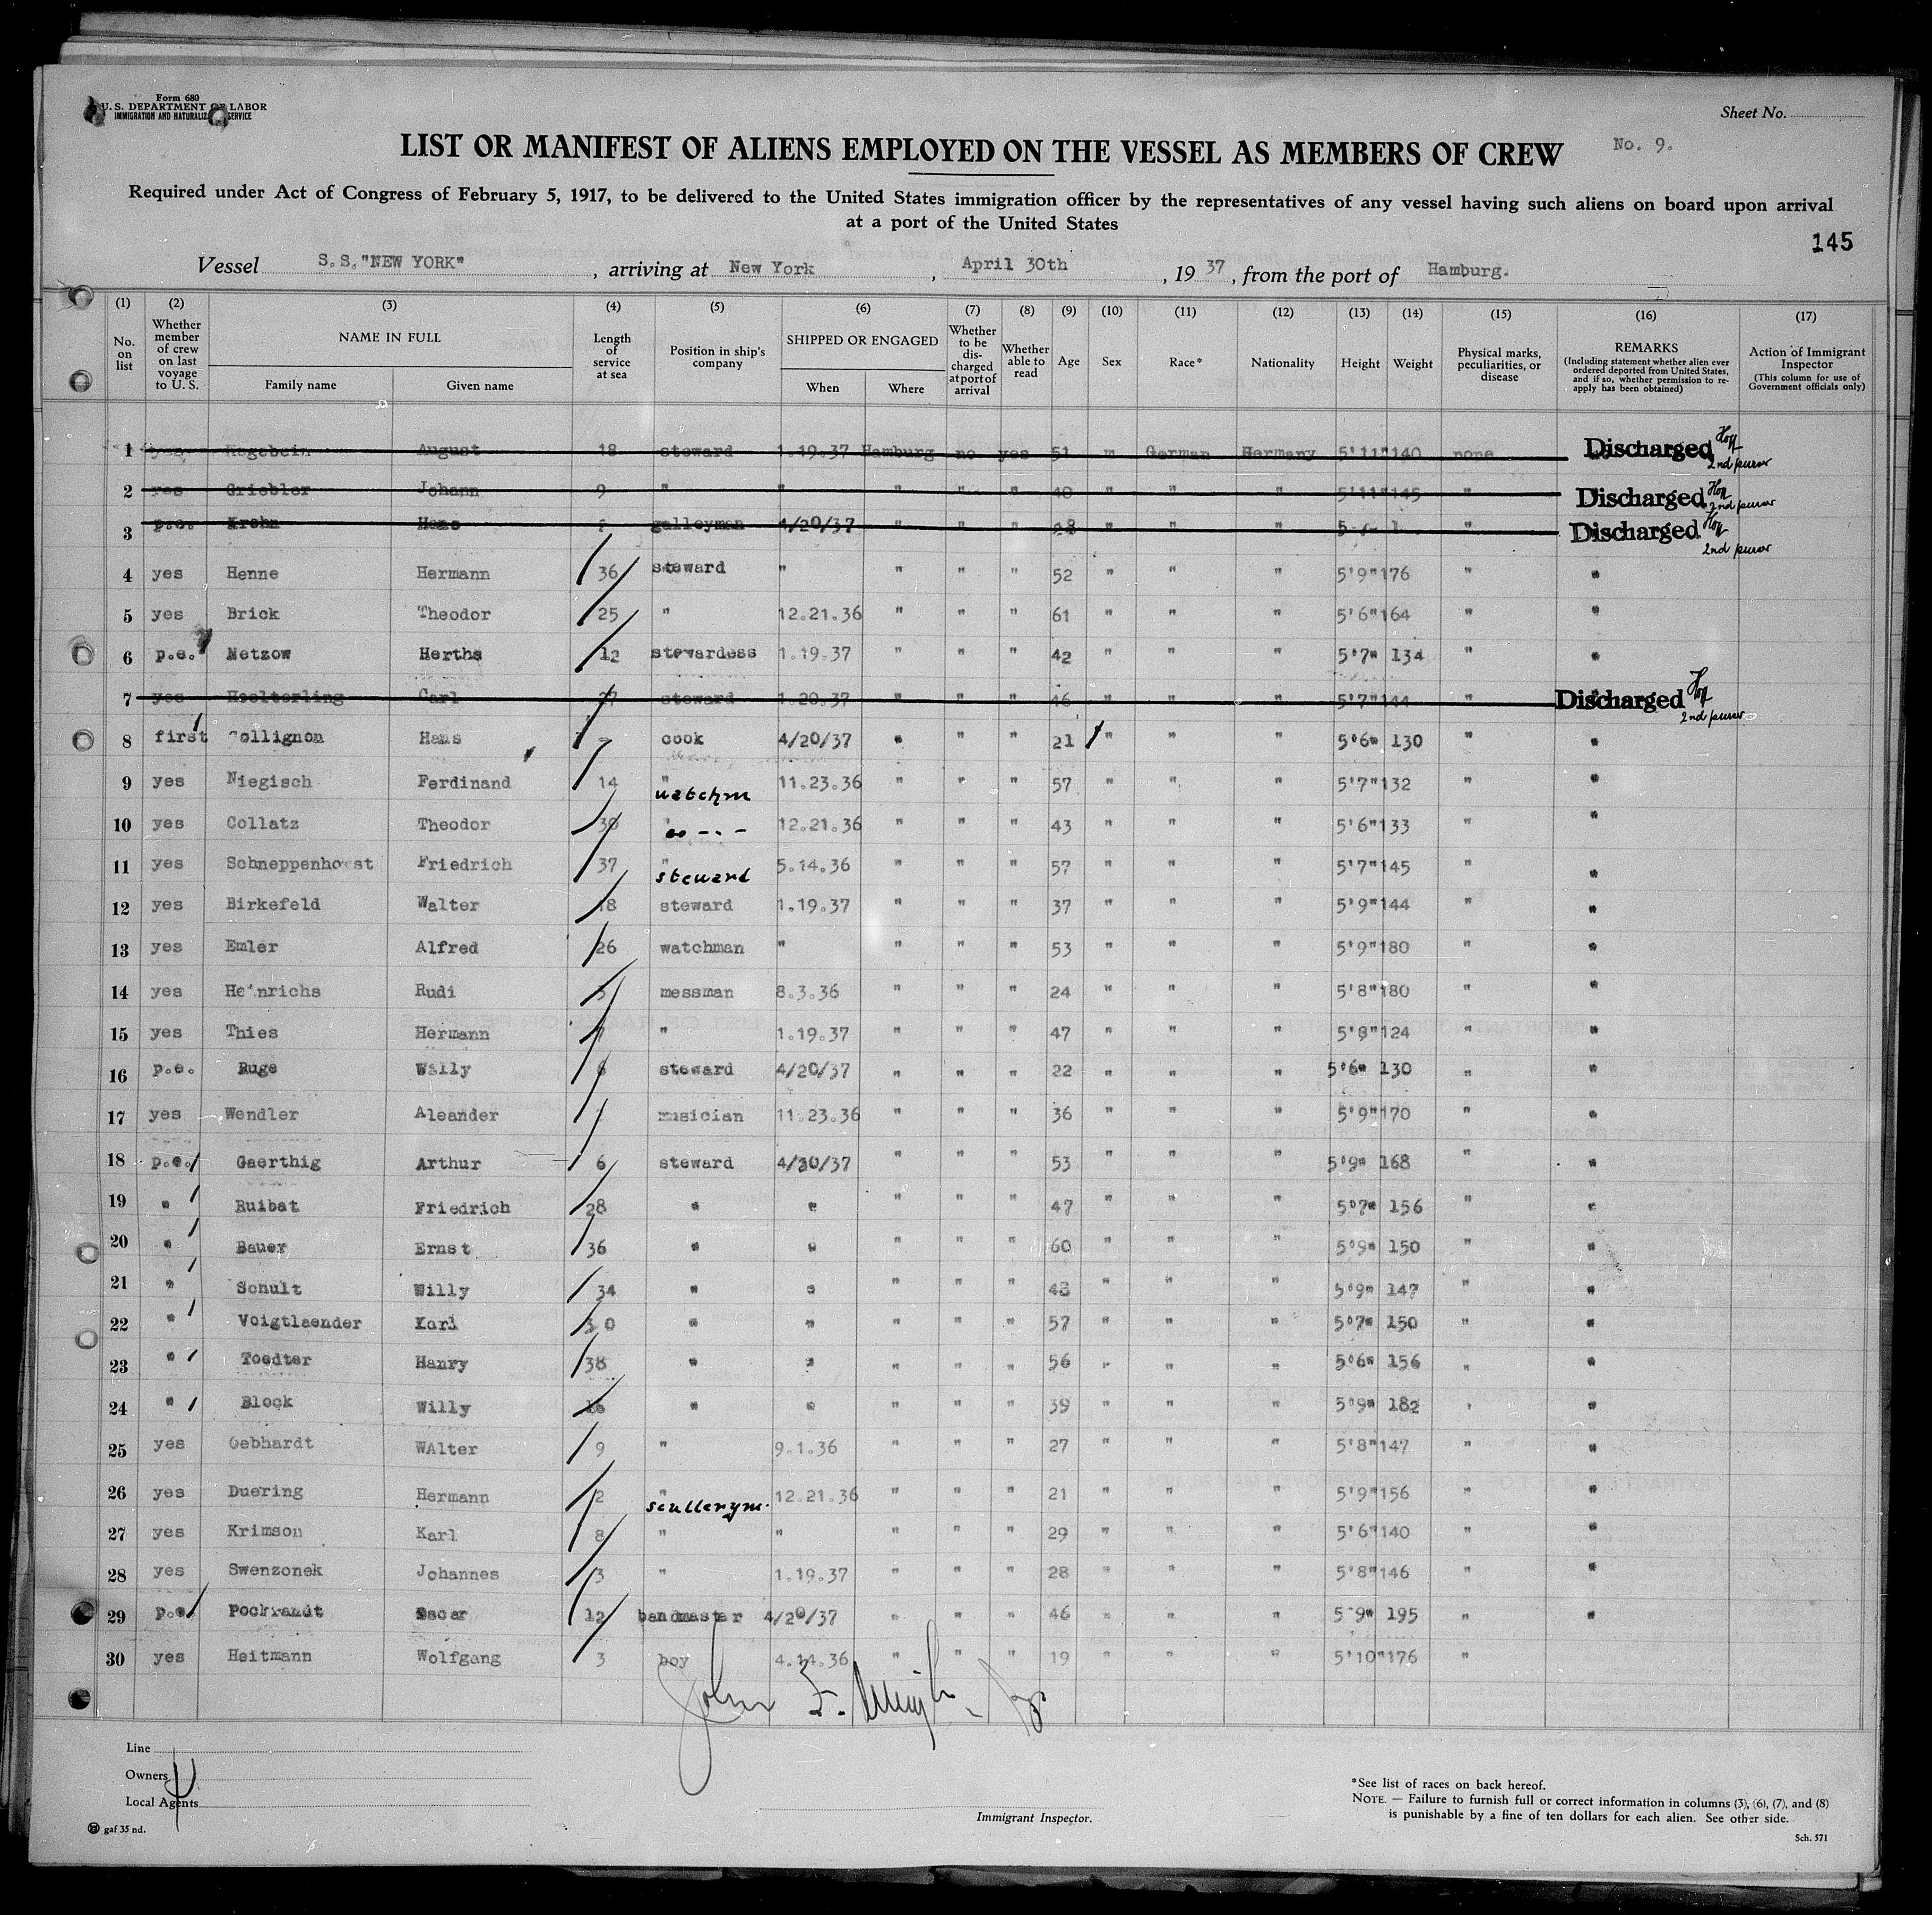 Form 680
U. S. DEPARTMENT OF LABOR
IMMIGRATION AND NATURALIZ SERVICE
Sheet No.
LIST OR MANIFEST OF ALIENS EMPLOYED ON THE VESSEL AS MEMBERS OF CREW No. 9.
Required under Act of Congress of February 5, 1917, to be delivered to the United States immigration officer by the representatives of any vessel having such aliens on board upon arrival
at a port of the United States
145
Vessel S.S."NEW YORK" , arriving at New York , April 30th , 19 37 , from the port of Hamburg.
(1) (2) (3) (4) (5) (6) (7) (8) (9) (10) (11) (12) (13) (14) (15) (16) (17)
No. on list
Whether member of crew on last voyage to U. S.
NAME IN FULL
Family name Given name
Length of service at sea
Position in ship's company
SHIPPED OR ENGAGED
When Where
Whether to be discharged at port of arrival
Whether able to read
Age
Sex
Race*
Nationality
Height
Weight
Physical marks, peculiarities, or disease
REMARKS
(Including statement whether alien ever ordered deported from United States, and if so, whether permission to reapply has been obtained)
Action of Immigrant Inspector
(This column for use of Government officials only)
1 yes August 18 steward 1.19.37 Hamburg no yes 51 m German Germany 5'11" 140 none Discharged 2nd purser
2 yes Griebler Johann 9 " " " " " 40 " " " 5'11" 145 " Discharged 2nd purser
3 p.e. Krohn Hans galleyman 4/20/37 " " " " " " " Discharged 2nd purser
4 yes Henne Hermann 36 steward " " " " 52 " " " 5'9" 176 " "
5 yes Brick Theodor 25 " 12.21.36 " " " 61 " " " 5'6" 164 " "
6 p.e. Netzow Hertha 12 stewardess 1.19.37 " " " 42 " " " 5'7" 134 " "
7 yes Hoelterling Carl 27 steward 1.20.37 " " " 46 " " " 5'7" 144 " Discharged 2nd purser
8 first Collignon Hans - cook 4/20/37 " " " 21 " " " 5'6" 130 " "
9 yes Niegisch Ferdinand 14 " watchm 11.23.36 " " " 57 " " " 5'7" 132 " "
10 yes Collatz Theodor 30 " --- 12.21.36 " " " 43 " " " 5'6" 133 " "
11 yes Schneppenhorst Friedrich 37 " steward 5.14.36 " " " 57 " " " 5'7" 145 " "
12 yes Birkefeld Walter 18 steward 1.19.37 " " " 37 " " " 5'9" 144 " "
13 yes Emler Alfred 26 watchman " " " " 53 " " " 5'9" 180 " "
14 yes Heinrichs Rudi 3 messman 8.3.36 " " " 24 " " " 5'8" 180 " "
15 yes Thies Hermann " 1.19.37 " " " 47 " " " 5'8" 124 " "
16 p.e. Ruge Willy 6 steward 4/20/37 " " " 22 " " " 5'6" 130 " "
17 yes Wendler Aleander musician 11.23.36 " " " 36 " " " 5'9" 170 " "
18 p.e. Gaerthig Arthur 6 steward 4/20/37 " " " 53 " " " 5'9" 168 " "
19 " Ruibat Friedrich 28 " " " " " 47 " " " 5'7" 156 " "
20 " Bauer Ernst 36 " " " " " 60 " " " 5'9" 150 " "
21 " Schult Willy 34 " " " " " 48 " " " 5'9" 147 " "
22 " Voigtlaender Karl 30 " " " " " 57 " " " 5'7" 150 " "
23 " Toedter Hanry 38 " " " " " 56 " " " 5'6" 156 " "
24 " Block Willy 16 " " " " " 39 " " " 5'9" 182 " "
25 yes Gebhardt WAlter 9 " 9.1.36 " " " 27 " " " 5'8" 147 " "
26 yes Duering Hermann 2 " scullerym. 12.21.36 " " " 21 " " " 5'9" 156 " "
27 yes Krimson Karl 8 " " " " " 29 " " " 5'6" 140 " "
28 yes Swenzonek Johannes 3 " 1.19.37 " " " 28 " " " 5'8" 146 " "
29 p.e. Pockrandt Oscar 12 bandmaster 4/20/37 " " " 46 " " " 5'9" 195 " "
30 yes Heitmann Wolfgang 3 boy 4.14.36 " " " 19 " " " 5'10" 176 "
John F.
Line
Owners
Local Agents
gaf 35 nd.
Immigrant Inspector.
*See list of races on back hereof.
NOTE. — Failure to furnish full or correct information in columns (3), (6), (7), and (8)
is punishable by a fine of ten dollars for each alien. See other side.
Sch. 571